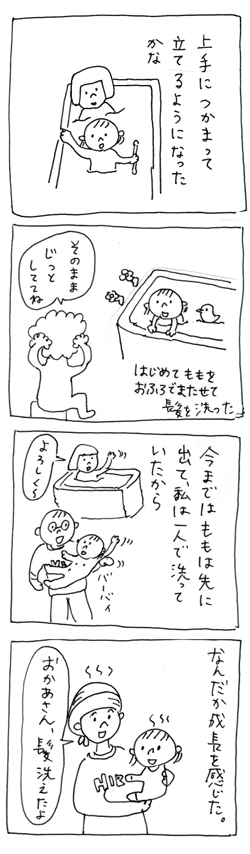 上手につかまって
立てるようになった
かな
そのまま
じっと
しててね
はじめてももを
おふろでまたせて
髪を洗った。
今まではももは先に
出て、私は一人で洗って
いたから
よろしく〜
バーバイ
なんだか成長を感じた。
おかあさん、
髪洗えたよ
HIKO